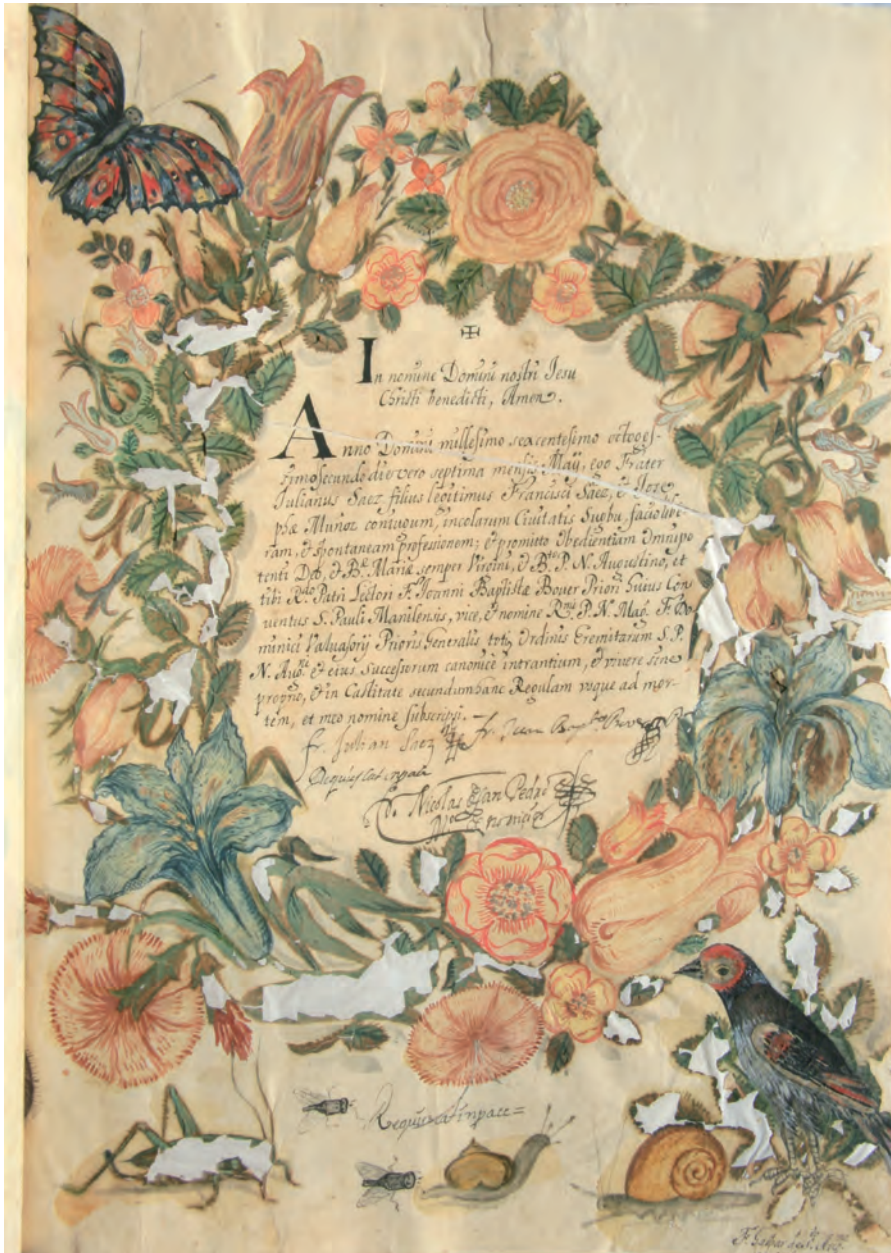 ✠
In nomine Domini nostri Iesu
Christi benedicti, Amen.
Anno Domini millesimo sexcentesimo octoges-
simo secundo die vero septima mensis Maÿ, ego Frater
Iulianus Saez filius legitimus Francisci Saez, & Iose-
phæ Muñoz coniugum, incolarum Ciuitatis Sugbu, facio libe
ram, & spontaneam professionem; & promitto Obedientiam Omnipo
tenti Deo, & Bᵗᵉ Mariæ semper Virgini, & Bᵗᵒ P. N. Augustino, et
tibi R.ᵈᵒ Patri Lectori F. Ioanni Baptistæ Bouer Priori huius Con
uentus S. Pauli Manilensis, vice, & nomine Rᵐⁱ P. N. Mag. F. Do
minici Valuasorij Prioris Generalis totꝰ Ordinis Eremitarum S. P.
N. Augⁿⁱ & eius Successorum canonice intrantium, & vivere sine
proprio, & in Castitate secundum hanc Regulam vsque ad mor-
tem, et meo nomine subscripsi.
fr. Julian Saez fr. Juan Bapᵗᵃ Bover
Requiescat in pace
Nicolas de San Pedro
Requiescat in pace =